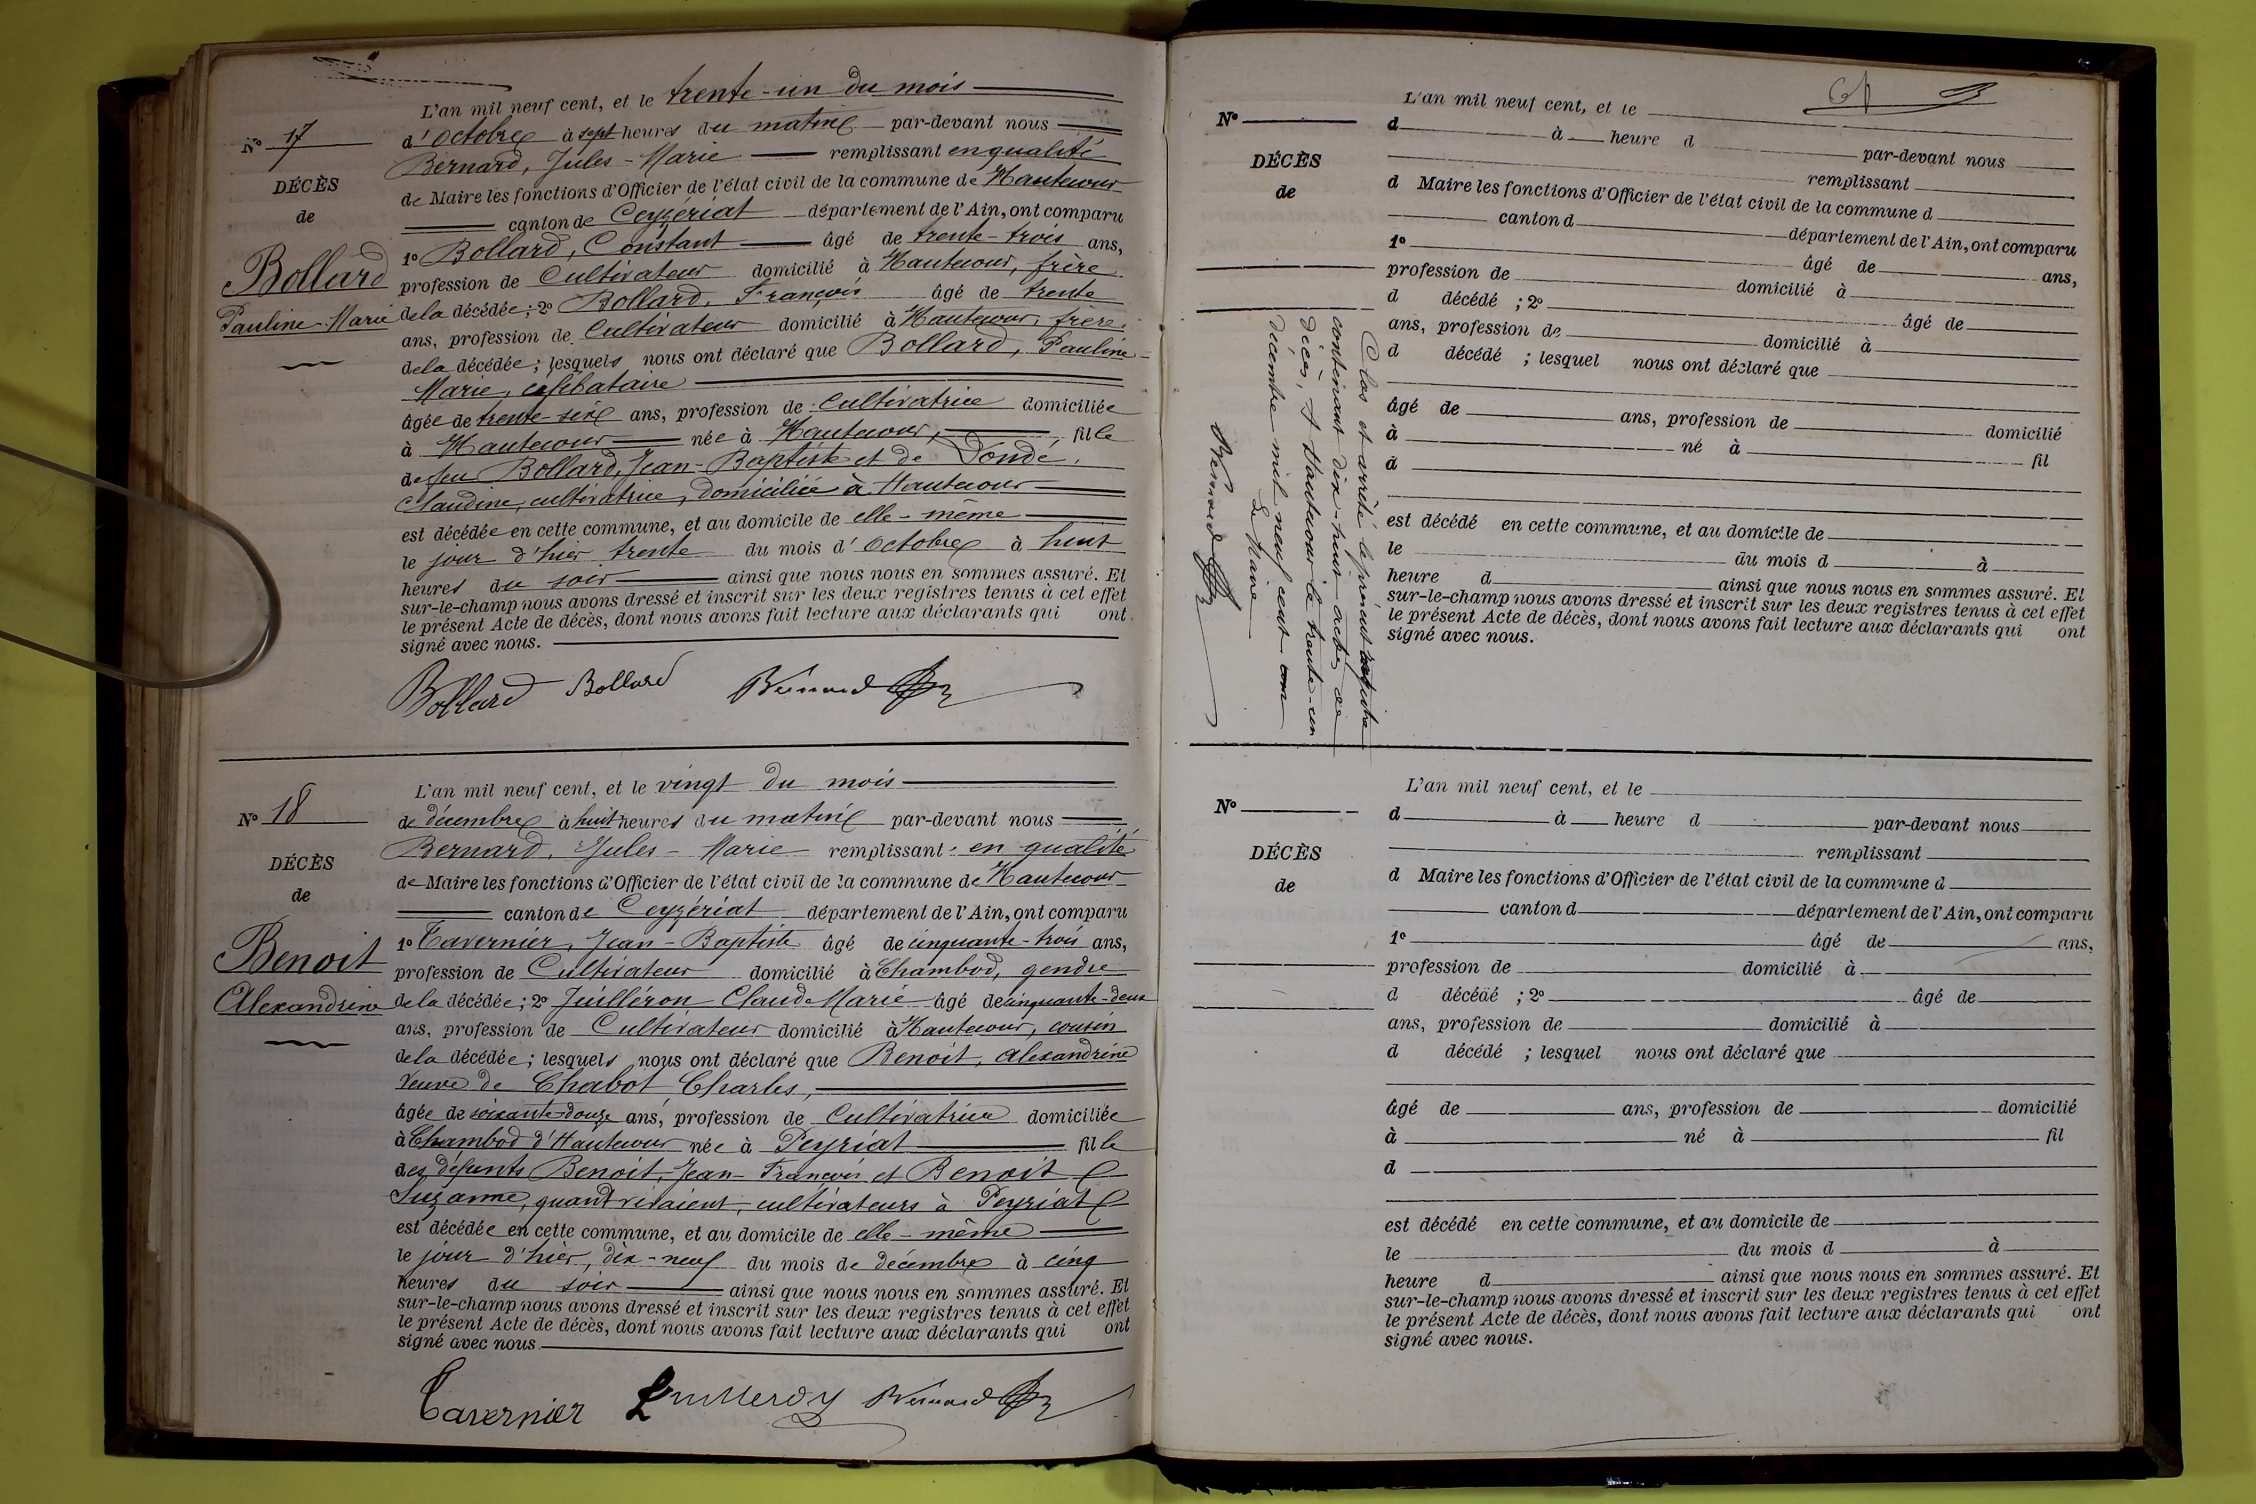 L'an mil neuf cent, et le trente-un du mois
No 17
d'Octobre à sept heures du matin par-devant nous
Bernard, Jules-Marie remplissant en qualité
DÉCÈS
de Maire les fonctions d'Officier de l'état civil de la commune de Hautecour
de
canton de Ceyzériat département de l'Ain, ont comparu
Bollard
1o Bollard, Constant âgé de trente-trois ans,
profession de Cultivateur domicilié à Hautecour, frère
Pauline-Marie
de la décédée; 2o Bollard, François âgé de trente
ans, profession de Cultivateur domicilié à Hautecour, frère
de la décédée; lesquels nous ont déclaré que Bollard, Pauline-
Marie, célibataire
âgée de trente-six ans, profession de Cultivatrice domiciliée
à Hautecour née à Hautecour, fille
de feu Bollard, Jean-Baptiste et de Dondé,
Claudine, cultivatrice, domiciliée à Hautecour
est décédée en cette commune, et au domicile de elle-même
le jour d'hier trente du mois d'Octobre à huit
heures du soir ainsi que nous nous en sommes assuré. Et
sur-le-champ nous avons dressé et inscrit sur les deux registres tenus à cet effet
le présent Acte de décès, dont nous avons fait lecture aux déclarants qui ont
signé avec nous.
Bollard Bollard Bernard
L'an mil neuf cent, et le vingt du mois
No 18
de décembre à huit heures du matin par-devant nous
Bernard, Jules-Marie remplissant en qualité
DÉCÈS
de Maire les fonctions d'Officier de l'état civil de la commune de Hautecour
de
canton de Ceyzériat département de l'Ain, ont comparu
Benoit
1o Tavernier, Jean-Baptiste âgé de cinquante-trois ans,
profession de Cultivateur domicilié à Chambod, gendre
Alexandrine
de la décédée; 2o Juilléron Claude Marie âgé de cinquante-deux
ans, profession de Cultivateur domicilié à Hautecour, cousin
de la décédée; lesquels nous ont déclaré que Benoit, Alexandrine
Veuve de Chabot Charles,
âgée de soixante-douze ans, profession de Cultivatrice domiciliée
à Chambod d'Hautecour née à Peyriat fille
des défunts Benoit, Jean-François et Benoit
Suzanne, quand vivaient, cultivateurs à Peyriat
est décédée en cette commune, et au domicile de elle-même
le jour d'hier, dix-neuf du mois de décembre à cinq
heures du soir ainsi que nous nous en sommes assuré. Et
sur-le-champ nous avons dressé et inscrit sur les deux registres tenus à cet effet
le présent Acte de décès, dont nous avons fait lecture aux déclarants qui ont
signé avec nous
Tavernier Bernard
L'an mil neuf cent, et le
No
d à heure d par-devant nous
remplissant
DÉCÈS
de
d Maire les fonctions d'Officier de l'état civil de la commune d
canton d département de l'Ain, ont comparu
1o âgé de ans,
profession de domicilié à
d décédé ; 2o âgé de
ans, profession de domicilié à
d décédé ; lesquel nous ont déclaré que
âgé de ans, profession de domicilié
à né à fil
d
est décédé en cette commune, et au domicile de
le du mois d à
heure d ainsi que nous nous en sommes assuré. Et
sur-le-champ nous avons dressé et inscrit sur les deux registres tenus à cet effet
le présent Acte de décès, dont nous avons fait lecture aux déclarants qui ont
signé avec nous.
Clos et arrêté le présent registre
contenant dix-huit actes de
décès, à Hautecour le trente-un
décembre mil neuf cent
Le Maire
Bernard
L'an mil neuf cent, et le
No
d à heure d par-devant nous
remplissant
DÉCÈS
de
d Maire les fonctions d'Officier de l'état civil de la commune d
canton d département de l'Ain, ont comparu
1o âgé de ans,
profession de domicilié à
d décédé ; 2o âgé de
ans, profession de domicilié à
d décédé ; lesquel nous ont déclaré que
âgé de ans, profession de domicilié
à né à fil
d
est décédé en cette commune, et au domicile de
le du mois d à
heure d ainsi que nous nous en sommes assuré. Et
sur-le-champ nous avons dressé et inscrit sur les deux registres tenus à cet effet
le présent Acte de décès, dont nous avons fait lecture aux déclarants qui ont
signé avec nous.